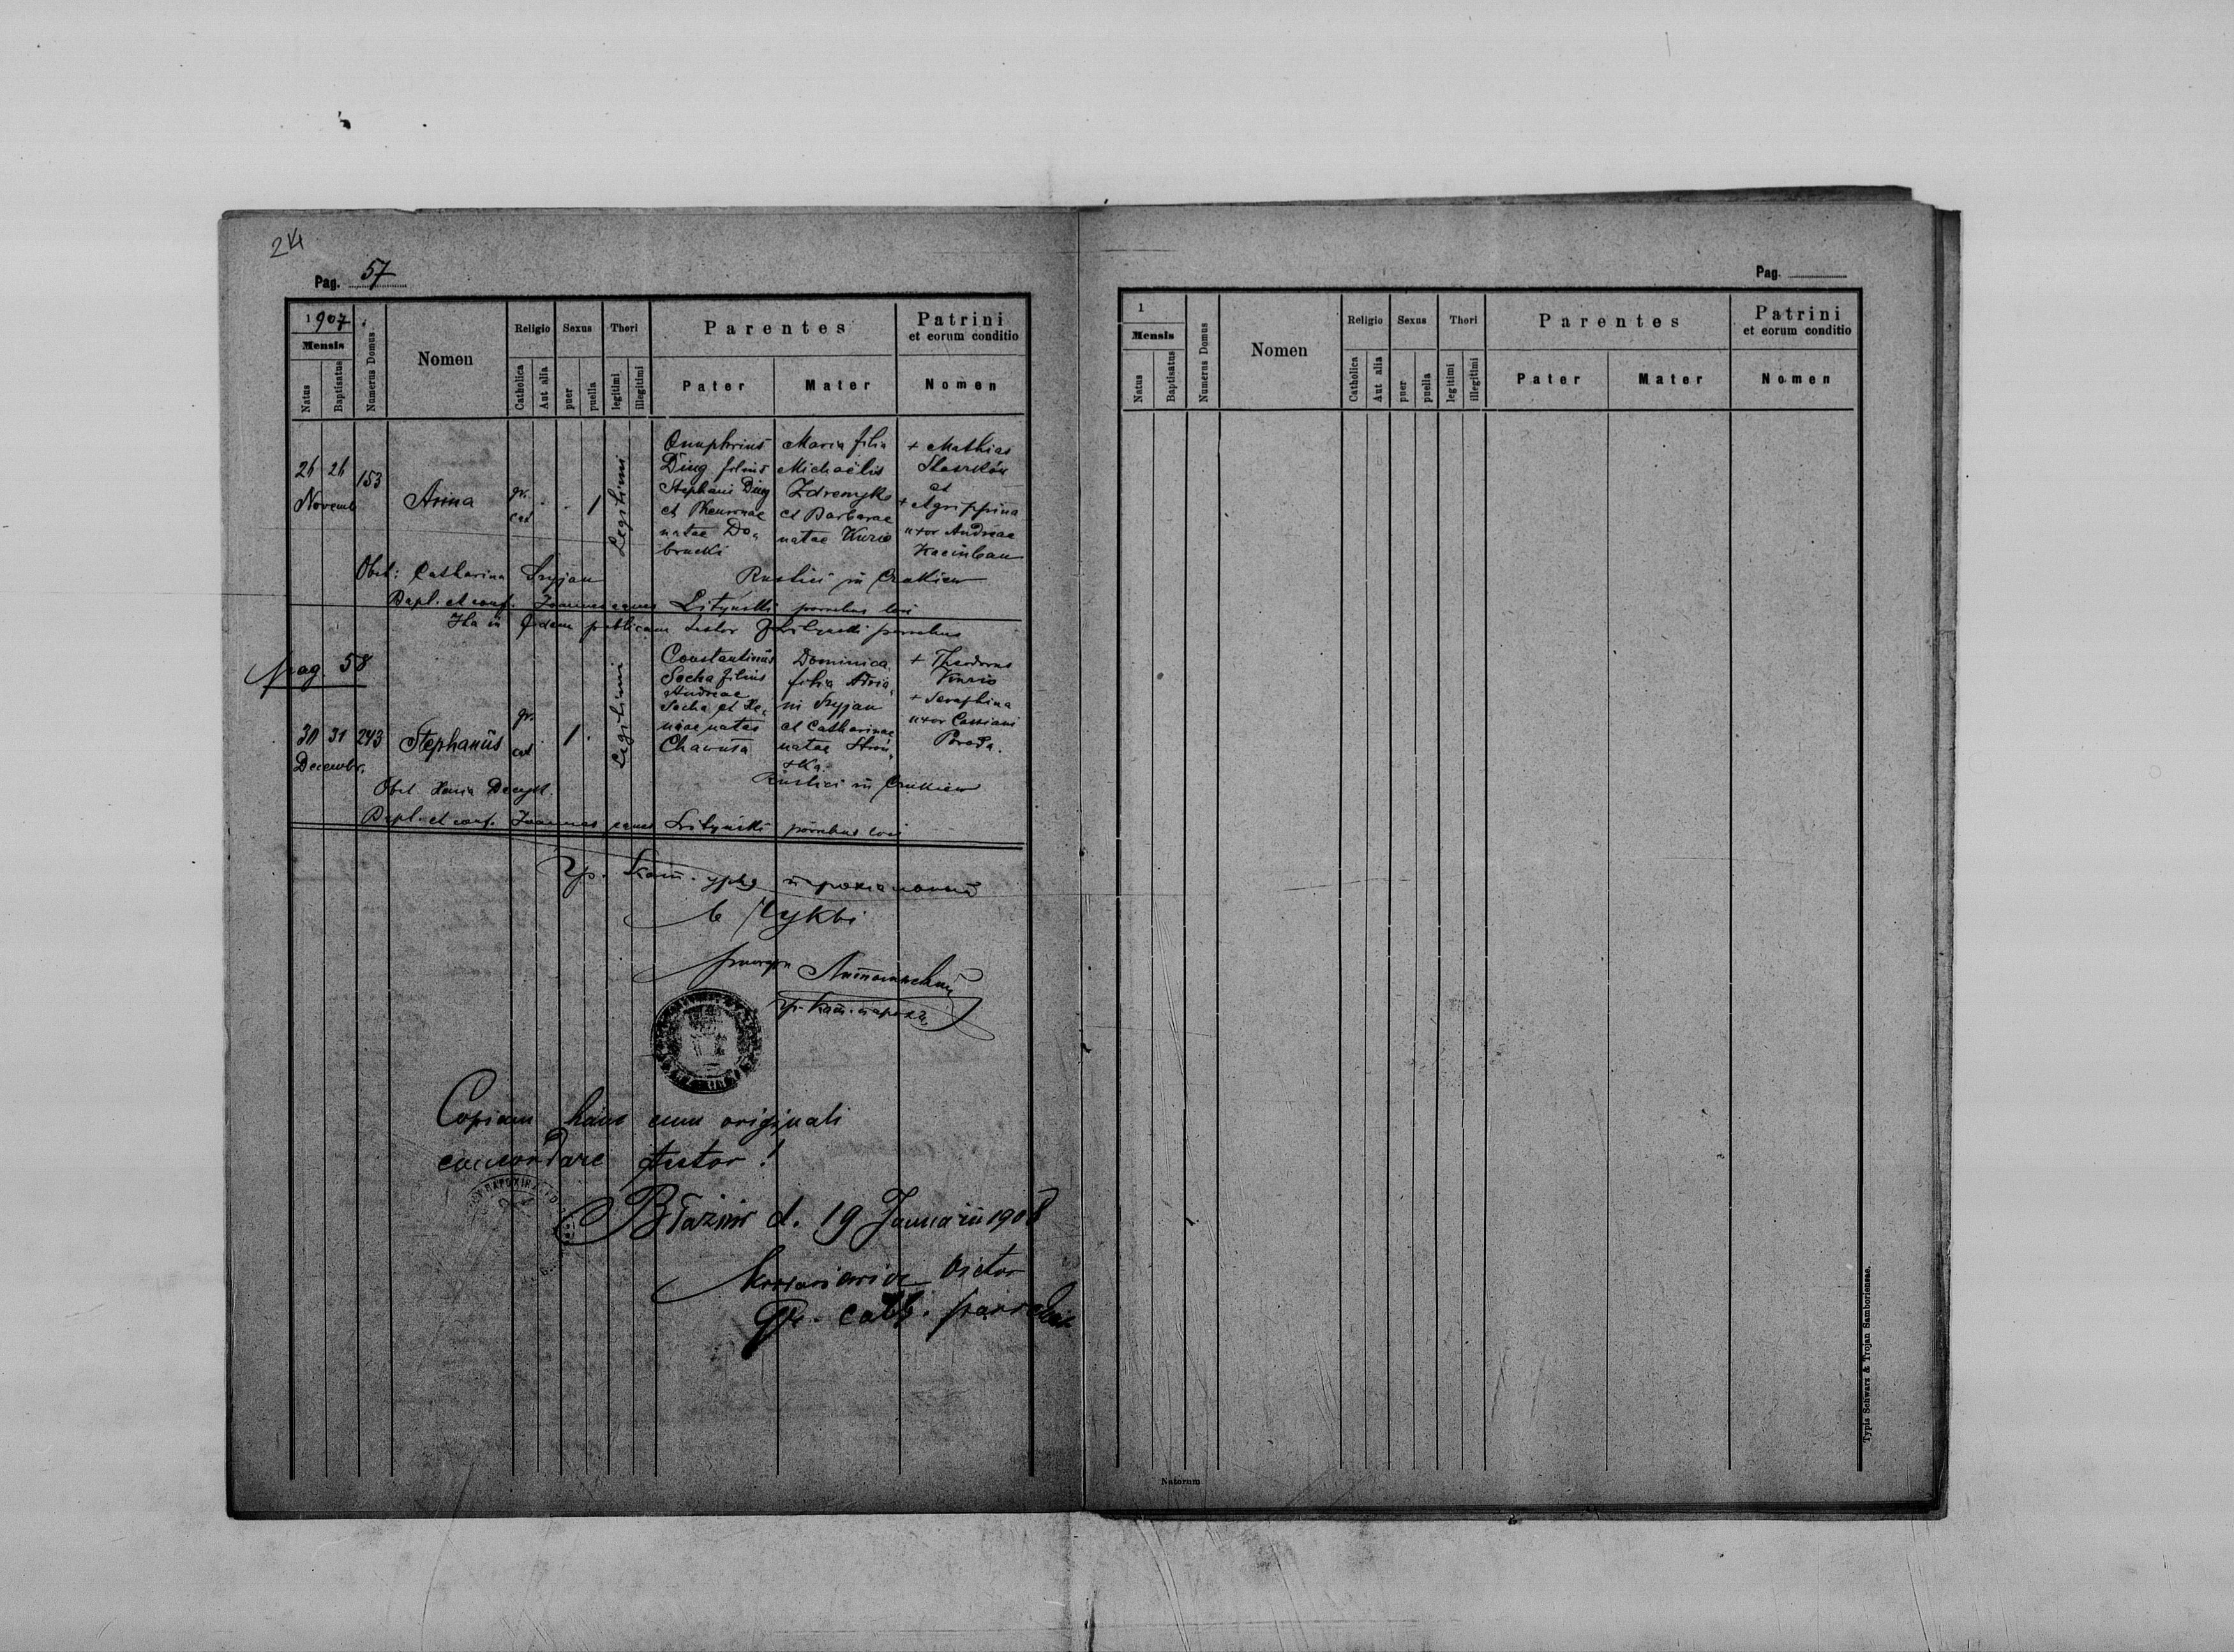 24
Pag. 57
1907.
Mensis
Natus
Baptisatus
Numerus Domus
Nomen
Religio
Catholica
Aut alia
Sexus
puer
puella
Thori
legitimi
illegitimi
Parentes
Pater
Mater
Patrini
et eorum conditio
Nomen
26 26 153
Novemb
Anna
gr.
cat
1
Legitimi
Onuphrius
Ding filius
Stephani Ding
et
natae Do„
brucki
Maria filia
Michaëlis
Zdremyko
et Barbarae
natae Kurio
+ Mathias
et
+ Agrippina
uxor Andreae
Obst: Catharina Szyjan
Rustici in Czukiew
Bapt. et conf. Joannes eques Lityński parochus loci
Ita in fidem publicam testor J Lityński parochus
pag. 58
30 31 243
Decembr.
Stephanus
gr.
cat
1
Legitimi
Constantinus
Socha filius
Andreae
Socha et Xe„
niae natae
Chawna
Dominica
filia Adria„
ni Szyjan
et Catharinae
natae
+ Theodorus
Kurio
+ Seraphina
uxor Cassiani
Poroda.
Obst Xenia
Rustici in Czukiew
Bapt. et conf. Joannes eques Lityński parochus loci
Гр. Кат. уряд парохіяльный
в Чукві
Литиньский
гр. кат. парох
Copiam hanc cum originali
concordare testor!
Błażów d. 19 Januarii 1908
Victor
gr. cath. parochus
Pag.
1
Mensis
Natus
Baptisatus
Numerus Domus
Nomen
Religio
Catholica
Aut alia
Sexus
puer
puella
Thori
legitimi
illegitimi
Parentes
Pater
Mater
Patrini
et eorum conditio
Nomen
Natorum
Typis Schwarz & Trojan Samboriensae.